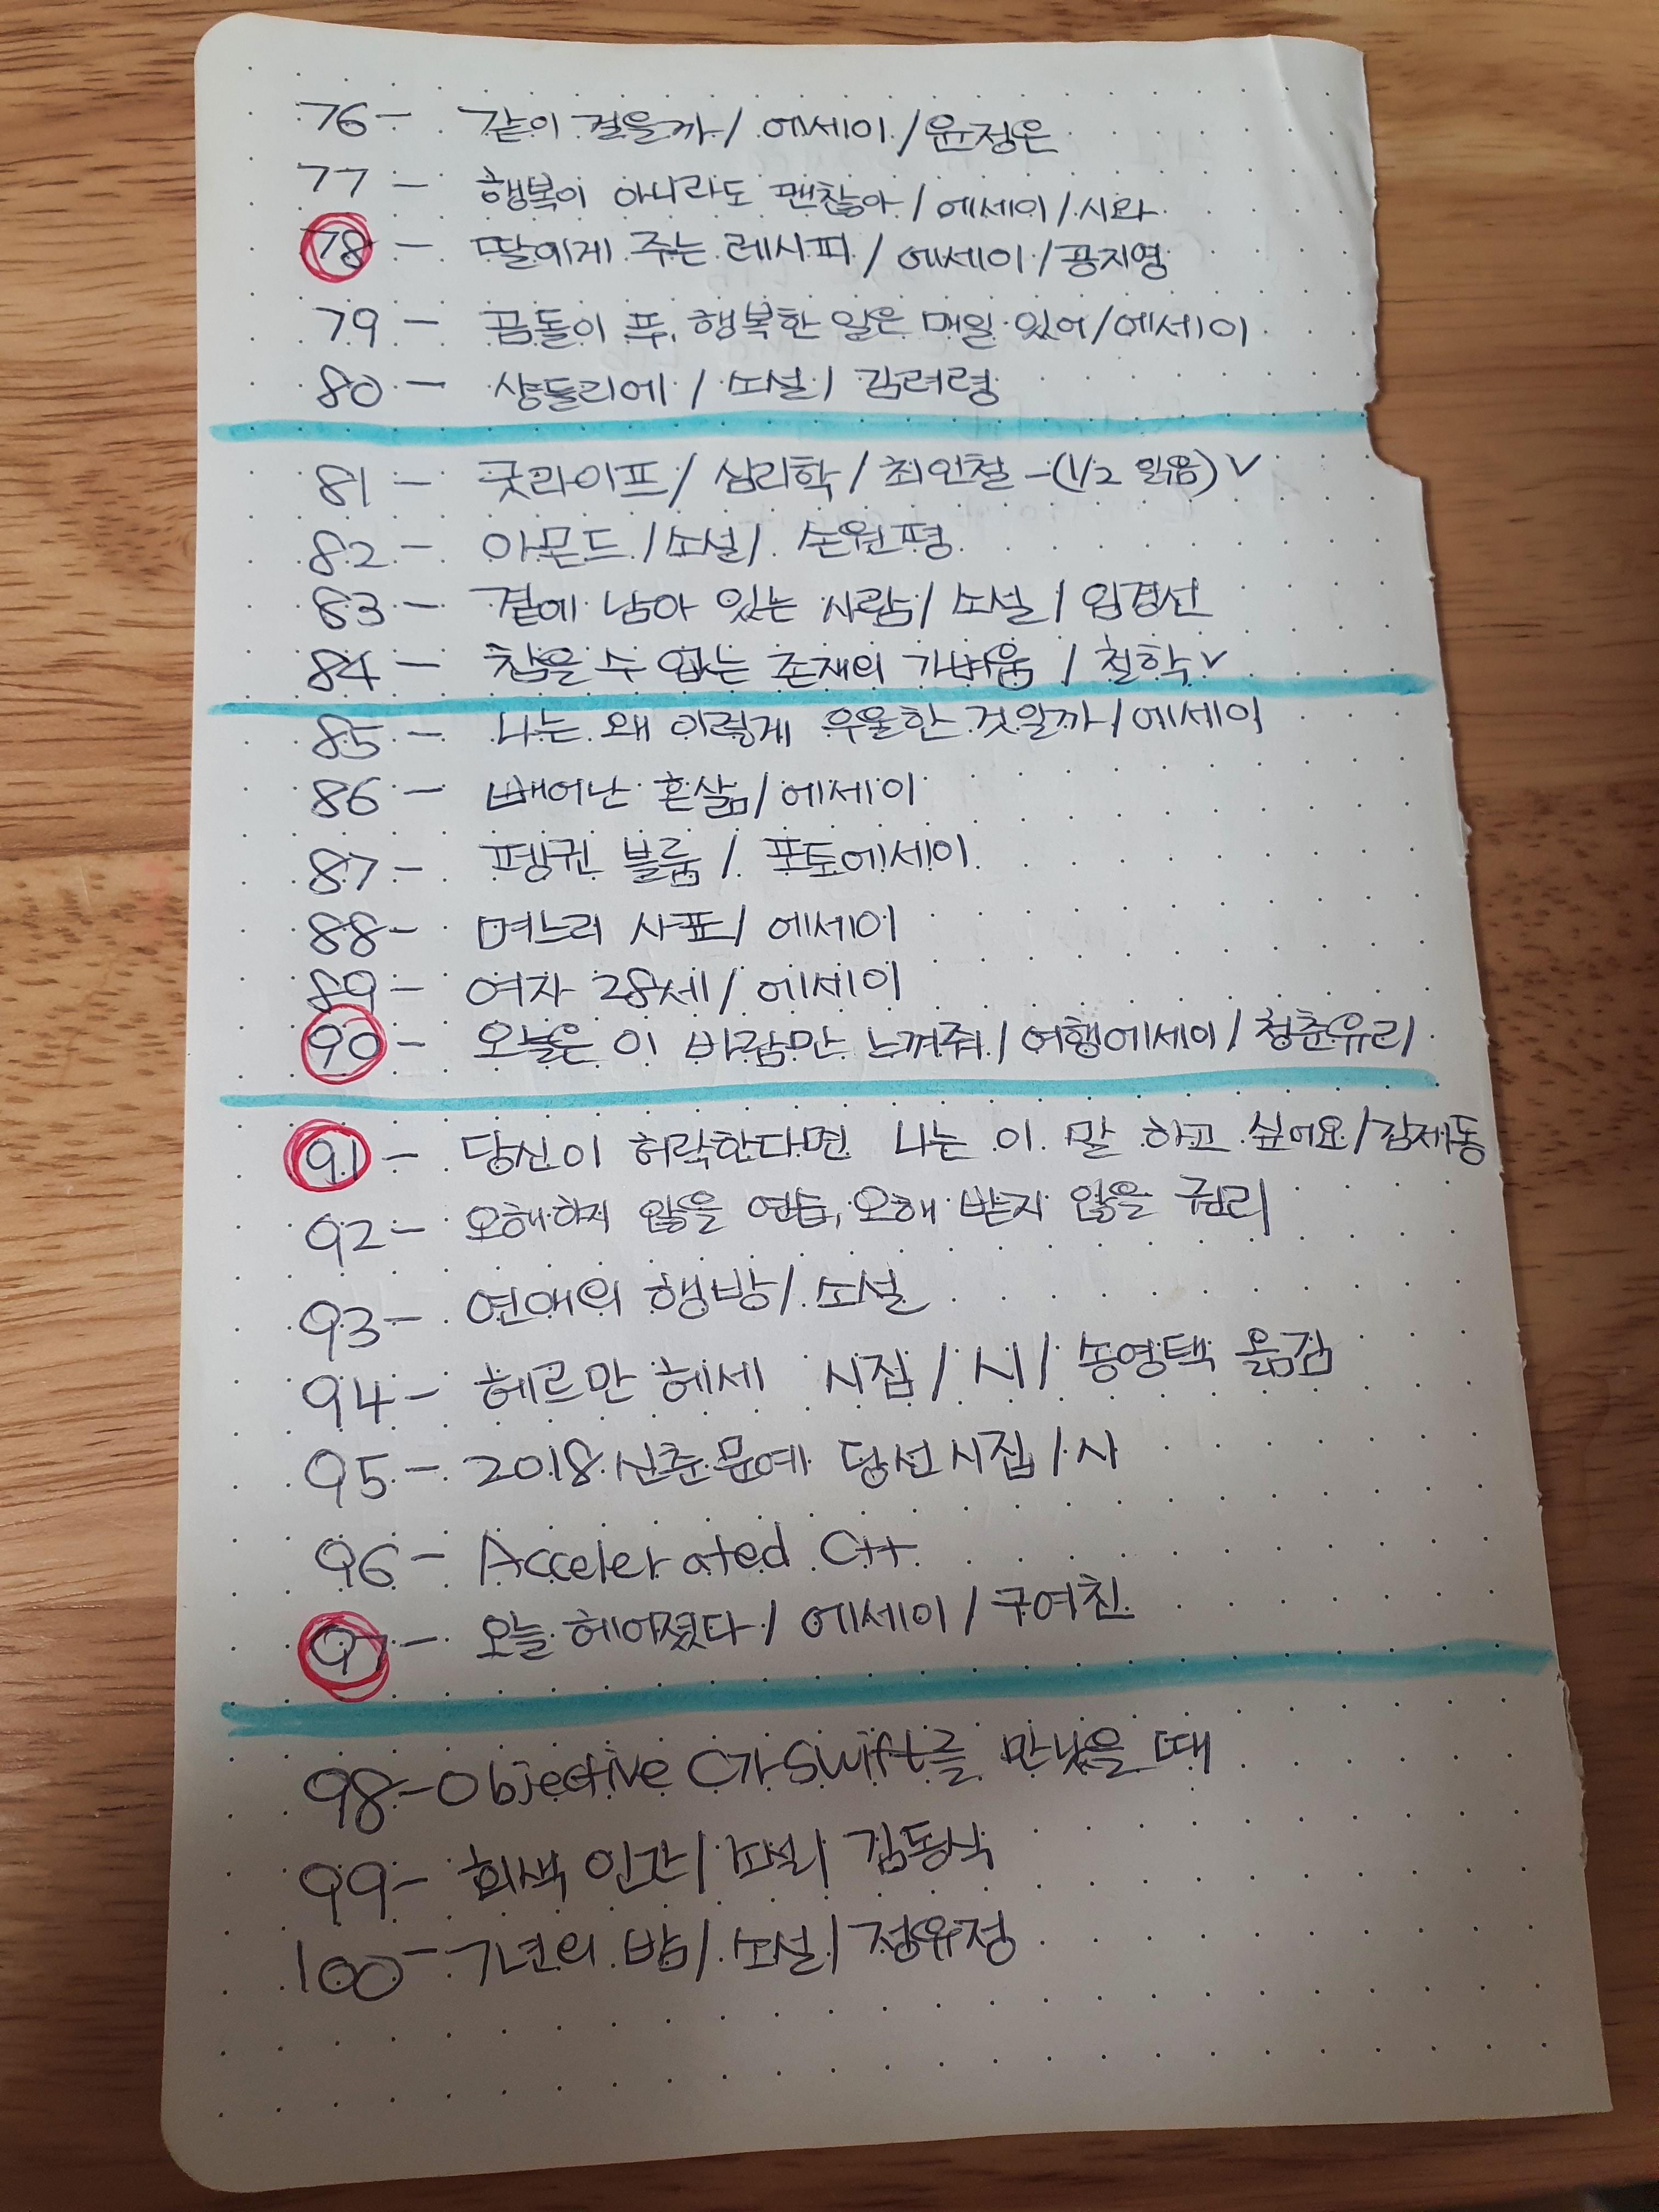 76- 같이 걸을까/ 에세이/윤정은
77- 행복이 아니라도 괜찮아/에세이/시와
78- 딸에게 주는 레시피/에세이/공지영
79- 곰돌이 푸, 행복한 일은 매일 있어/에세이
80- 샹들리에/소설/김려령
81- 굿라이프/심리학/최인철-(1/2 읽음)✓
82- 아몬드/소설/손원평
83- 곁에 남아 있는 사람/소설/임경선
84- 참을 수 없는 존재의 가벼움/철학✓
85- 나는 왜 이렇게 우울한 것일까/에세이
86- 빼어난 혼삶/에세이
87- 펭귄 블룸/포토에세이
88- 며느리 사표/에세이
89- 여자 28세/에세이
90- 오늘은 이 바람만 느껴줘/여행에세이/청춘유리
91- 당신이 허락한다면 나는 이 말 하고 싶어요/김제동
92- 오해하지 않을 연습, 오해 받지 않을 권리
93- 연애의 행방/소설
94- 헤르만 헤세 시집/시/송영택 옮김
95- 2018 신춘문예 당선시집/시
96- Accelerated C++
97- 오늘 헤어졌다/에세이/구여친
98- Objective C가 Swift를 만났을 때
99- 회색 인간/소설/김동식
100- 7년의 밤/소설/정유정